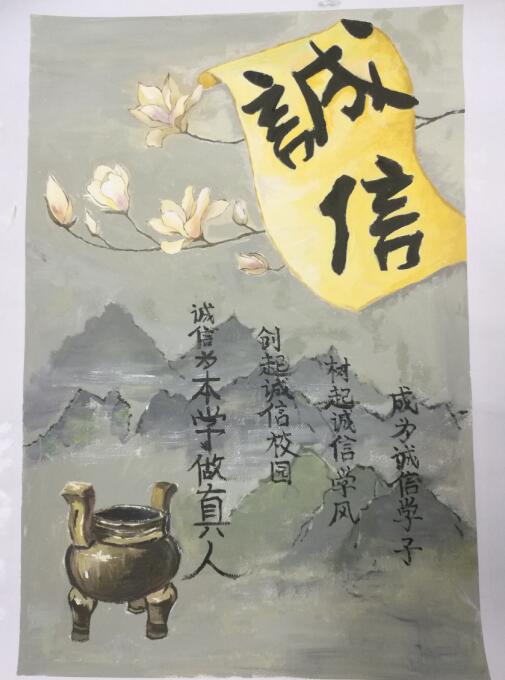 誠
信
成为诚信学子
树起诚信学风
创起诚信校园
诚信为本学做真人